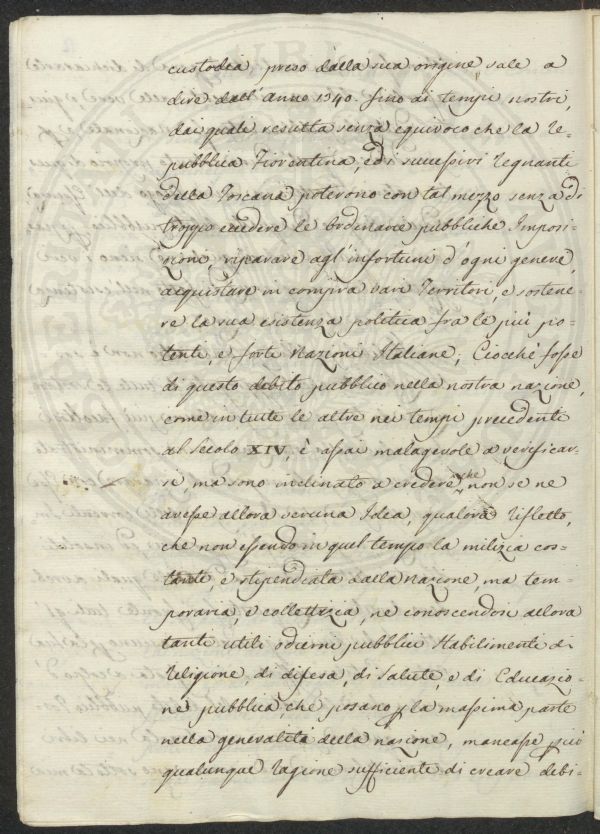 custodia, preso dalla sua origine vale a
dire dall'anno 1340. fino ai tempi nostri,
dai quale resulta senza equivoco che la Re-
pubblica Fiorentina, ed i successivi Regnanti
della Toscana poterono con tal mezzo senza di
troppo eccedere le Ordinarie pubbliche Imposi-
zioni, riparare agl'infortuni d'ogni genere,
acquistare in compra vari Territori, e sostene-
re la sua esistenza politica fra le più po-
tenti, e forti Nazioni Italiane; Ciocchè fosse
di questo debito pubblico nella nostra nazione,
come in tutte le altre nei tempi precedenti
al Secolo XIV, è assai malagevole a verificar-
si ma sono inclinato a credere, che non se ne
avesse allora veruna Idea, qualora rifletto,
che non essendo in quel tempo la milizia cos-
tante, e stipendiata dalla Nazione, ma tem-
poraria, e collettizia, ne conoscendosi allora
tanti utili odierni pubblici Stabilimenti di
Religione, di difesa, di Salute, e di Educazio-
ne pubblica, che posano p la massima parte
nella generalità della nazione, mancasse p ciò
qualunque ragione sufficiente di creare debi-